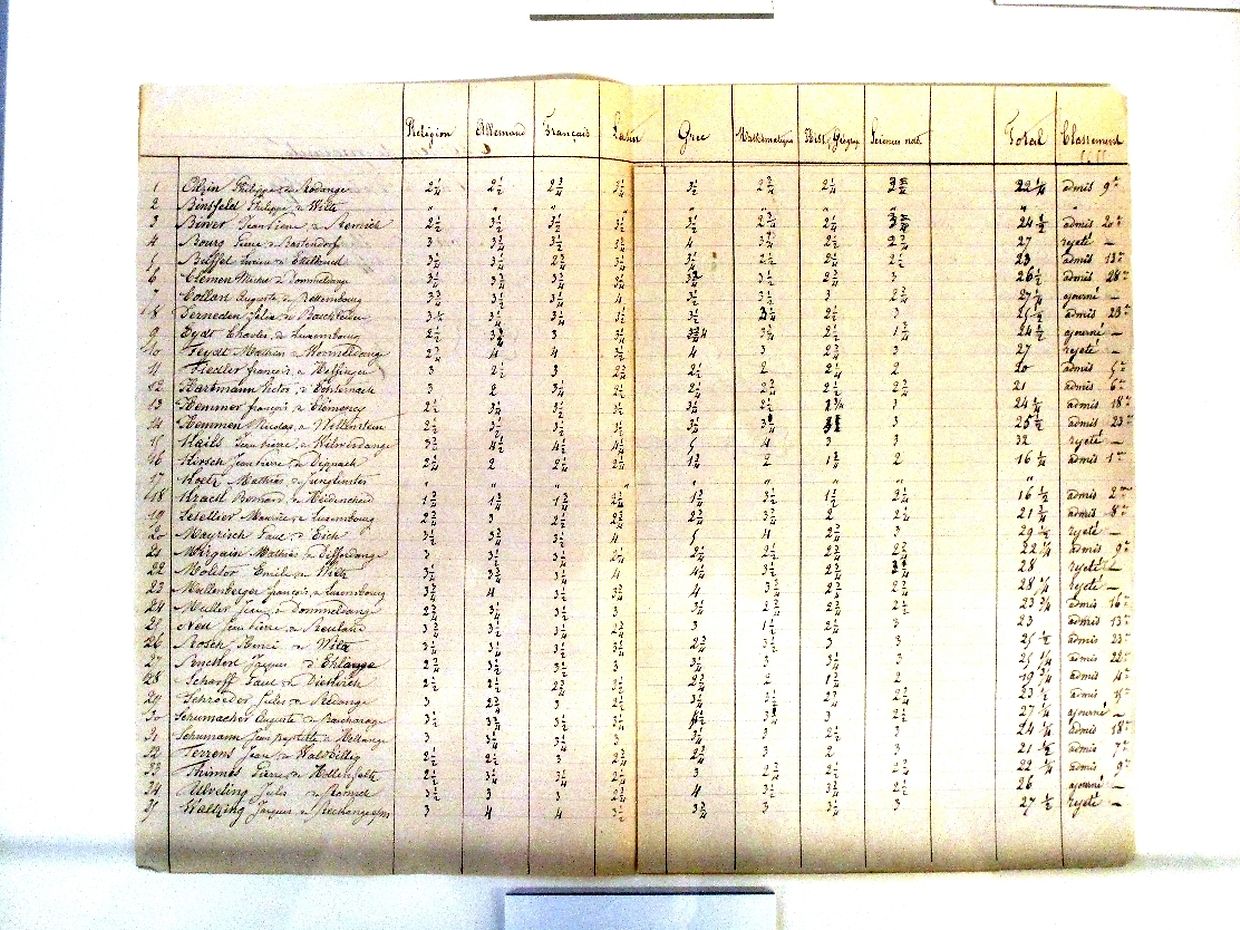 Religion Allemand Français Latin Grec Mathématiques Hist. Géogr. Sciences nat. Total Classement
1 Philippe de Rodange 2 1/4 2 1/2 2 3/4 3 1/4 3 1/2 2 3/4 2 1/4 22 1/4 admis 9e
2 Binsfeld Philippe de Wiltz " " " " " " " "
3 Biwer Jean Pierre de Remich 2 1/2 3 1/2 3 1/2 3 1/2 3 1/2 2 3/4 2 1/2 24 1/2 admis 20e
4 Bourg Pierre de Bastendorf 3 3 3/4 3 1/2 3 1/2 4 3 3/4 2 1/2 2 3/4 27 rejeté —
5 Buffet Lucien d'Ettelbruck 3 1/4 3 1/4 2 3/4 3 1/4 3 1/4 2 1/2 2 1/4 2 1/2 23 admis 13e
6 Clemen Michel de Dommeldange 3 1/4 3 3/4 3 3/4 3 1/2 2 3/4 3 26 1/2 admis 28e
7 Collart Auguste de Bettembourg 3 3/4 3 1/2 3 1/4 4 3 1/2 3 1/2 3 2 3/4 27 1/4 ajourné —
8 Derneden Julien de 3 1/2 3 1/4 3 1/4 3 1/2 3 1/2 3 1/4 2 1/2 3 25 1/2 admis 23e
9 Eydt Charles de Luxembourg 2 1/2 3 3 1/2 3 1/4 2 1/2 1 3/4 24 1/2 ajourné —
10 Feydt Mathias de Wormeldange 2 3/4 4 4 3 1/2 4 3 2 3/4 3 27 rejeté —
11 Fiedler françois de 3 2 1/2 3 2 3/4 2 1/2 2 2 1/4 2 20 admis 5e
12 Hartmann Victor d'Echternach 3 2 3 1/4 2 1/4 2 3/4 2 1/2 2 3/4 21 admis 6e
13 Hemmer françois de Clémency 2 1/2 3 1/4 3 1/2 3 1/2 3 1/4 2 1/2 2 3/4 3 24 1/4 admis 18e
14 Hemmen Nicolas de Wellenstein 2 1/2 3 1/2 3 1/2 3 1/2 3 1/2 3 25 1/2 admis 23e
15 Jean Pierre de Wilwerdange 3 3/4 4 1/2 4 1/2 4 1/2 5 4 3 3 32 rejeté —
16 Kirsch Jean Pierre de Dippach 2 1/4 2 2 1/4 2 1/4 1 3/4 2 1 3/4 2 16 1/4 admis 1er
17 Mathias de Junglinster " " " " " " " "
18 Kracht Romain de Heiderscheid 1 3/4 1 3/4 1 3/4 2 1/4 1 3/4 3 1/2 1 1/2 2 1/4 16 1/2 admis 2e
19 Letellier Maurice de Luxembourg 2 3/4 3 2 1/2 2 3/4 2 3/4 3 3/4 2 2 1/4 21 3/4 admis 8e
20 Mayrisch Paul d'Eich 3 1/2 3 3/4 3 1/2 4 5 4 2 3/4 3 29 1/2 rejeté —
21 Mathias de Differdange 3 3 1/2 3 1/4 2 3/4 2 1/4 2 1/2 2 3/4 2 3/4 22 1/4 admis 9e
22 Molitor Emile de Wiltz 3 1/2 3 3/4 3 1/4 4 4 1/4 3 1/2 2 3/4 28 rejeté —
23 Mullenberger françois de Luxembourg 3 3/4 4 3 1/2 4 4 3 3/4 2 3/4 2 3/4 28 1/4 rejeté —
24 Muller Jean de Dommeldange 2 3/4 3 1/4 3 1/2 3 3 1/4 2 3/4 2 3/4 2 1/2 23 3/4 admis 16e
25 Neu Jean Pierre de Reuland 3 3/4 3 1/2 3 1/4 2 3/4 3 1 1/2 2 3/4 3 23 admis 13e
26 Rosch Henri de Wiltz 3 3/4 3 1/2 3 1/2 3 1/2 2 3/4 3 1/2 3 3 25 1/2 admis 23e
27 Jacques d'Ehlange 2 3/4 3 1/2 3 1/2 3 3 1/4 3 3 1/4 3 25 1/4 admis 22e
28 Scharff Paul de Diekirch 2 1/2 2 1/2 2 3/4 3 1/4 2 3/4 2 1 3/4 2 1/4 19 3/4 admis 4e
29 Schroeder Jules de Pétange 3 2 3/4 3 2 3/4 3 1/4 3 1/2 2 3/4 2 3/4 23 1/2 admis 15e
30 Schumacher Auguste de Bascharage 3 1/2 3 3/4 3 1/2 3 1/4 3 2 1/2 27 1/4 ajourné —
31 Schumann Jean Baptiste de 3 3 1/4 3 1/4 3 3 1/4 3 2 1/2 3 24 1/4 admis 18e
32 Terrens Jean de Waldbillig 2 1/2 2 1/2 3 2 3/4 2 3/4 3 2 3 21 1/2 admis 7e
33 Thinnes Pierre de Hollenfeltz 2 1/2 3 1/4 3 1/4 2 1/4 3 2 3/4 2 1/2 2 3/4 22 1/4 admis 9e
34 Ulveling Jules de 3 1/2 3 3 2 3/4 4 3 1/4 3 1/4 2 1/2 26 ajourné —
35 Waltzing Jacques de 3 4 4 3 1/2 3 3/4 3 3 1/4 3 27 1/2 rejeté —